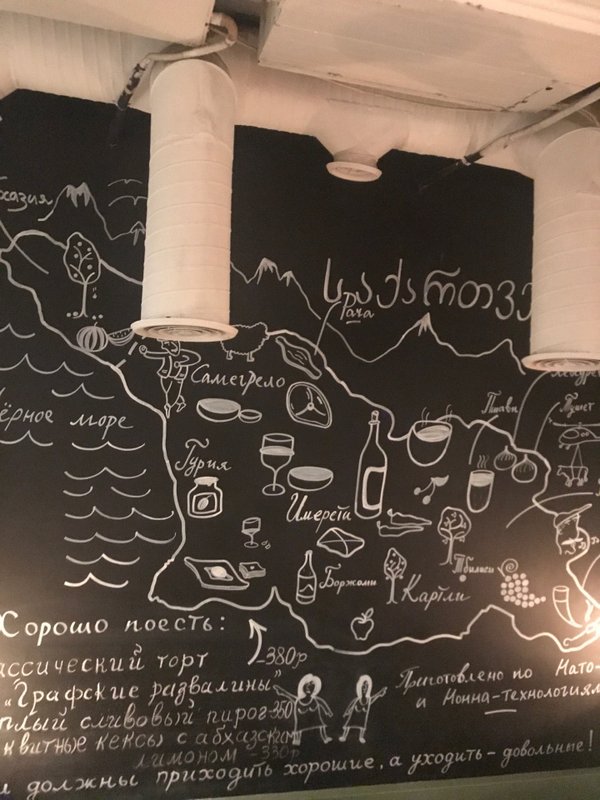 хазия
საქართვე
Рача
Самегрело
Пшави
Тушет
ёрное море
Гурия
Имерети
Тбилиси
Боржоми
Картли
Хорошо поесть:
ассический торт
„Графские развалины" -380р
плый сливовый пирог-350
квитные кексы с абхазским
лимоном 330р
Приготовлено по Мото-
и Нонна-технологиям
и должны приходить хорошие, а уходить - довольные!